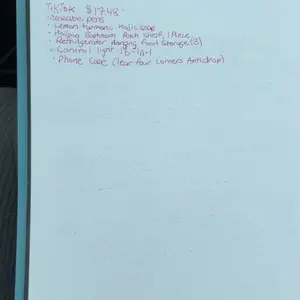 TikTok $17.48
· Erasable pens
· Lemon turmeric Kojic soap
· Holding Bathroom Rack Shelf, 1 Piece
· Refrigerator Hanging Food Storage (3)
· Control light
· Phone Case Clear Four Corners Antidrop)